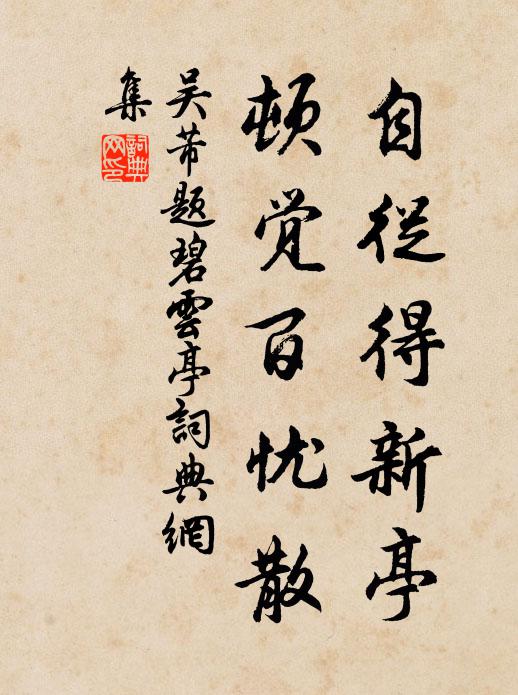 自從得新亭
頓覺百忧散
吴芾题碧雲亭詞典網
集
詞典網印